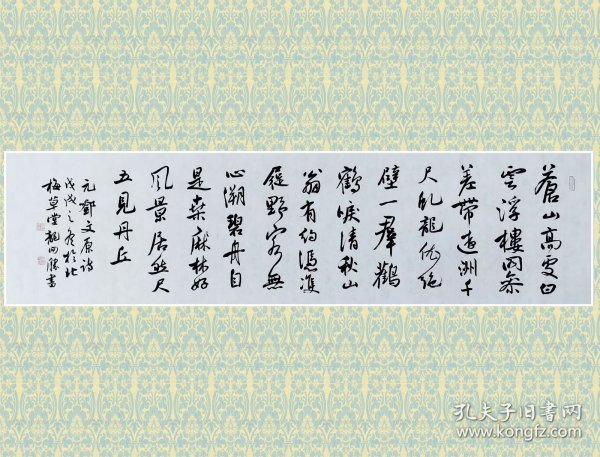 蒼山高處白
雲浮樓閣參
差帶遠洲千
尺虬龍依絕
壁一群鸛
鶴唳清秋山
翁有約憑雙
屐野客無
心溯碧舟自
是桑麻林好
風景居然尺
五見丹丘
元鄧文原詩
戊戌之冬於北
梅草堂書
孔夫子旧书网
www.kongfz.com